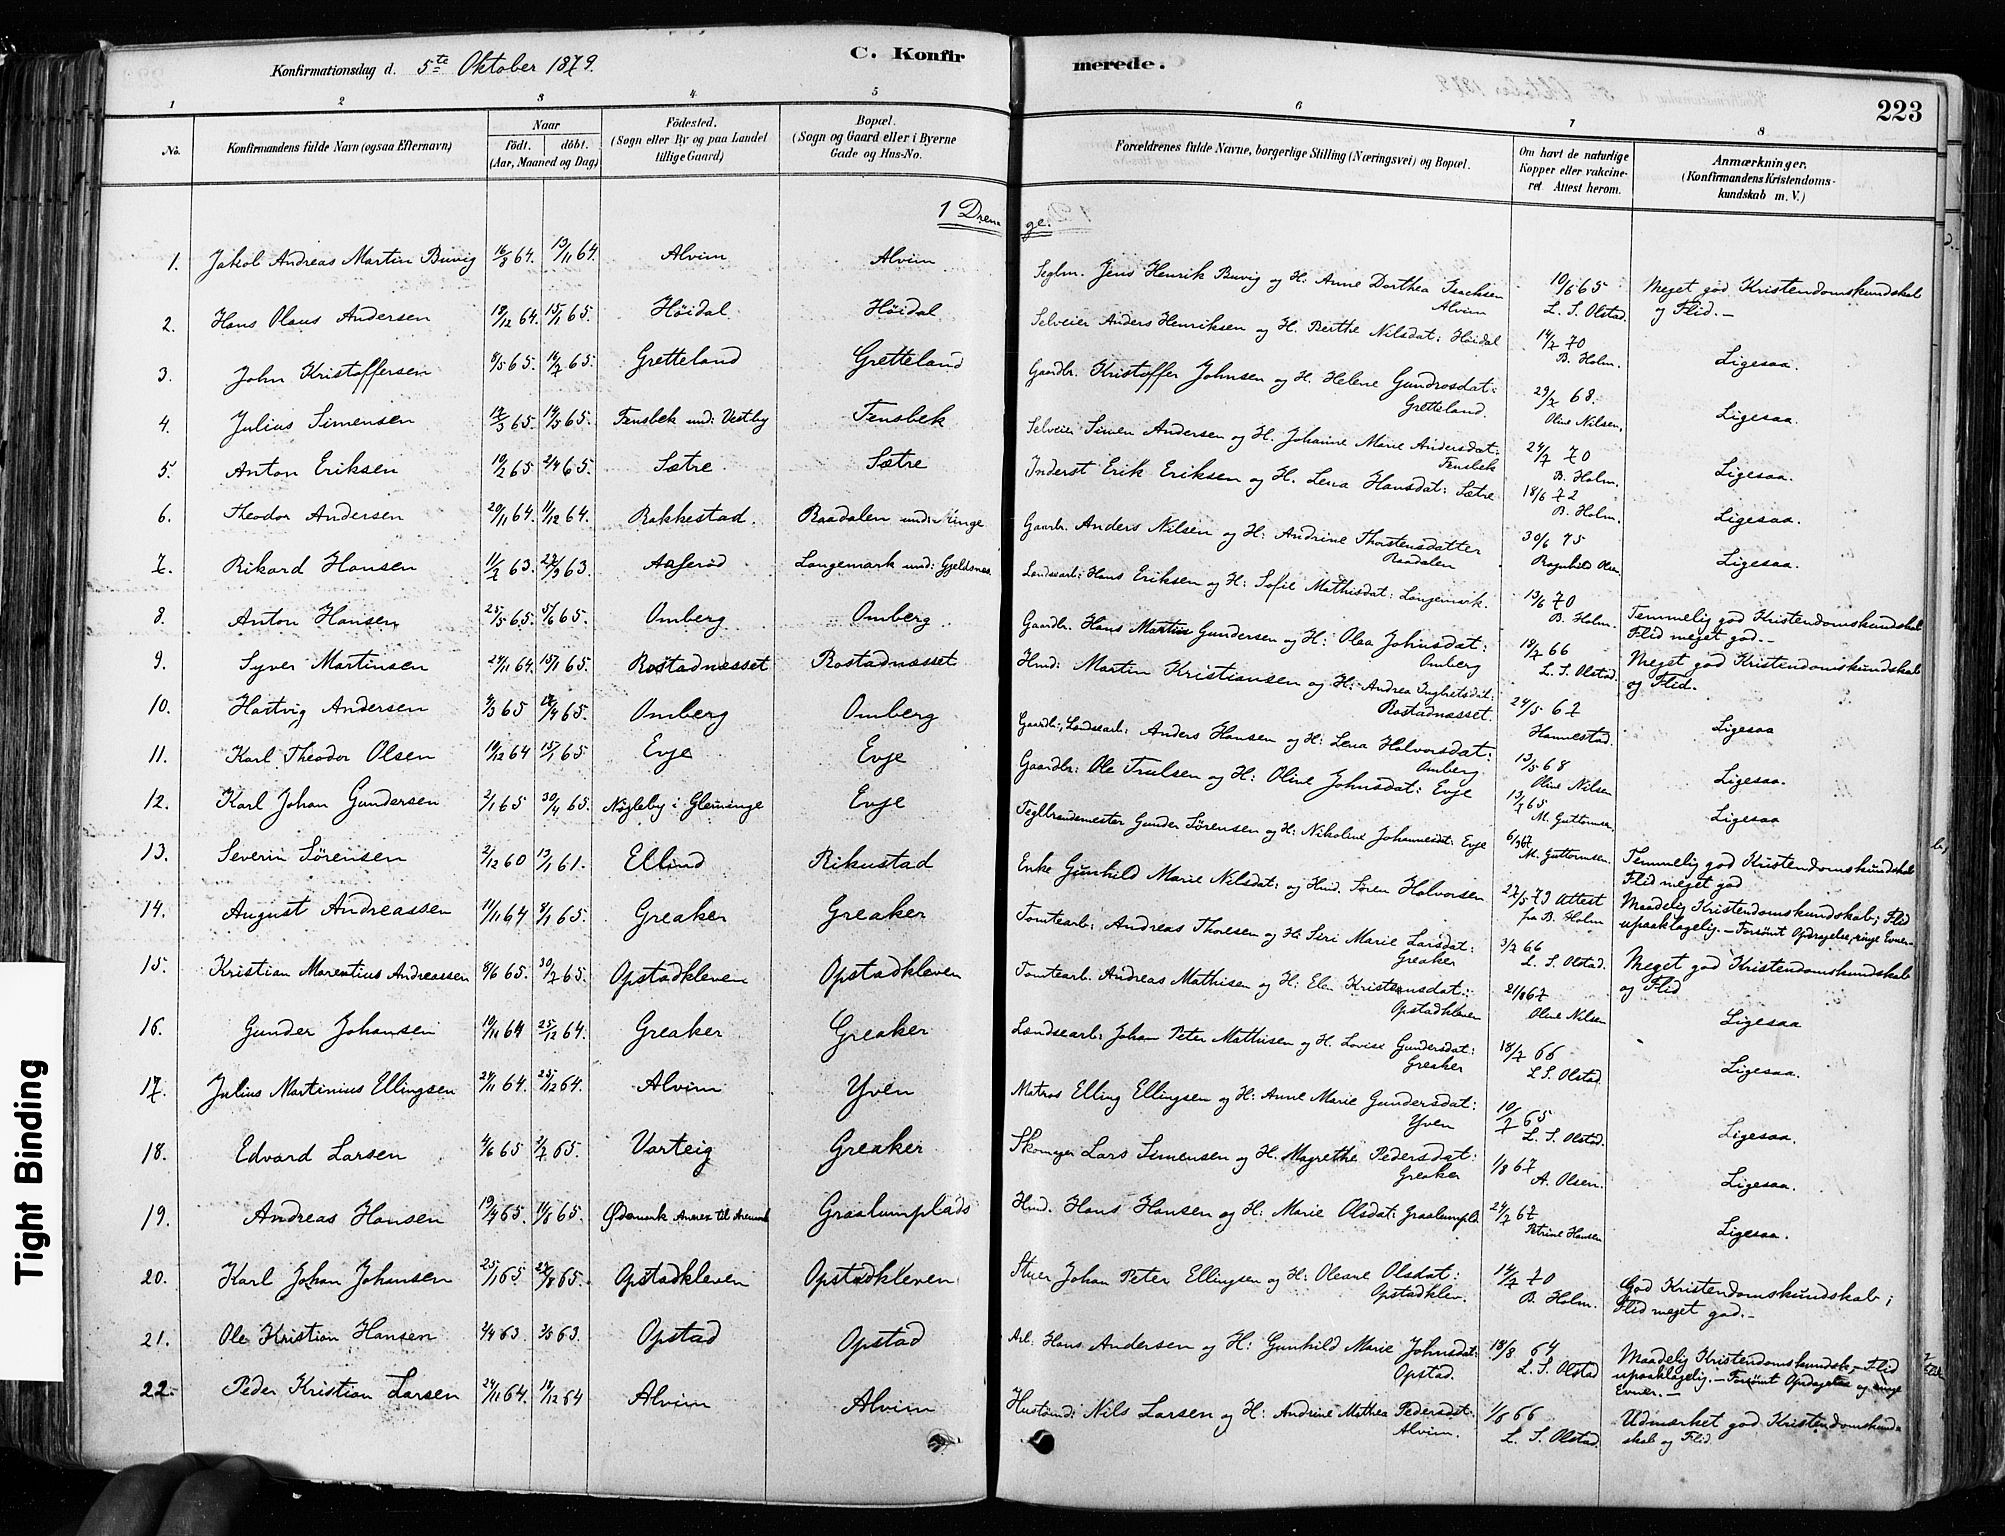 Konfirmationsdag d. 5te Oktober 1879.
C. Konfirmerede.
223
1 2 3 4 5 6 7 8
No.
Konfirmandens fulde Navn (ogsaa Efternavn)
Naar
født. døbt.
(Aar, Maaned og Dag)
Fødested.
(Sogn eller By og paa Landet
tillige Gaard)
Bopæl.
(Sogn og Gaard eller i Byerne
Gade og Hus-No.
Forældrenes fulde Navne, borgerlige Stilling (Næringsvei) og Bopæl.
Om havt de naturlige
Kopper eller vakcine-
ret Attest herom.
Anmærkninger.
(Konfirmandens Kristendoms-
kundskab m. V.)
1 Drenge.
1. Jakob Andreas Martin Buvig 16/8 64. 13/11 64. Alvim Alvim Seglm. Jens Henrik Buvig og H: Anne Dorthea Isachsen Alvim 10/6 65 L. S. Olstad. Meget god Kristendomskundskab og Flid.-
2. Hans Olaus Andersen 19/12 64. 15/1 65. Høidal Høidal Selveier Anders Henriksen og H. Berthe Nilsdat: Høidal 14/7 70 B. Holm. Ligesaa.
3. John Kristoffersen 8/5 65. 16/7 65. Gretteland Gretteland Gaardbr. Kristoffer Johnsen og H. Helene Gundrosdat: Gretteland. 29/7 68. Oline Nilsen. Ligesaa.
4. Julius Simensen 17/3 65. 14/5 65. Tensbek und: Vestby Tensbek Selveier Simen Andersen og H. Johanne Marie Andersdat: Tensbek 24/7 70 B. Holm. Ligesaa.
5. Anton Eriksen 19/2 65 2/4 65. Sætre Sætre Inderst Erik Eriksen og H. Lena Hansdat: Sætre 18/6 72 B. Holm. Ligesaa.
6. Theodor Andersen 20/11 64. 11/12 64. Rakkestad. Raadalen und: Ringe Gaarbr. Anders Nilsen og H: Andrine Thorstensdatter Raadalen 30/6 75 Ragnhild Olsen Ligesaa.
7. Rikard Hansen 11/2 63. 22/3 63. Aaserød Langemark und: Gjeldsnes Landsearb: Hans Eriksen og H: Sofie Mathisdat: Langemark. 13/6 70 B. Holm. Temmelig god Kristendomskundskab Flid meget god.-
8. Anton Hansen 25/5 65. 5/6 65. Omberg Omberg Gaardbr. Hans Martin Gundersen og H: Olea Johnsdat: Omberg 19/7 66 L. S. Olstad. Meget god Kristendomskundskab og Flid.
9. Syver Martinsen 24/11 64. 15/1 65. Rostadnæsset Rostadnæsset Hmd: Martin Kristiansen og H: Andrea Ingbretsdat: Rostadnæsset. 24/5 67 Hannestad. Ligesaa
10. Hartvig Andersen 9/3 65 17/4 65. Omberg Omberg Gaardbr:, Landsearb: Anders Hansen og H: Lena Halvorsdat: Omberg 13/5 68 Oline Nilsen Ligesaa.
11. Karl Theodor Olsen 19/12 64 15/1 65. Evje Evje Gaardbr: Ole Trulsen og H: Oline Johnsdat: Evje 13/7 65 M. Guttormsen. Ligesaa
12. Karl Johan Gundersen 2/1 65 30/4 65. Nøgleby i Glemminge Evje Teglbrændemester Gunder Sørensen og H: Nikoline Johannesdt: Evje 6/9 67 M. Guttormsen. Temmelig god Kristendomskundskab Flid meget god
13. Severin Sørensen 2/12 60 13/1 61. Ellind Rikustad Enke Gunhild Marie Nilsdat: og Hmd. Søren Halvorsen 27/5 79 Attest fra B. Holm Maadelig Kristendomskundskab; Flid upaaklagelig.- Forsømt Opdragelse, ringe Evner.
14. August Andreassen 11/11 64 8/1 65. Greaker Greaker Tomtearb: Andreas Thoresen og H: Siri Marie Larsdat: Greaker 3/7 66 L. S. Olstad. Meget god Kristendomskundskab og Flid
15. Kristian Marentius Andreassen 8/6 65. 30/7 65. Opstadkleven Opstadkleven Tomtearb. Andreas Mathisen og H: Elen Kristensdat: Opstadkleven 21/8 67 Oline Nilsen Ligesaa
16. Gunder Johansen 19/11 64 25/12 64. Greaker Greaker Landsearb: Johan Peter Mathisen og H. Lovise Gundersdat: Greaker 18/7 66 L. S. Olstad. Ligesaa.
17. Julius Martinius Ellingsen 24/11 64. 25/12 64. Alvim Yven Matros Elling Ellingsen og H: Anne Marie Gundersdat: Yven 10/7 65 L. S. Olstad. Ligesaa.
18. Edvard Larsen 4/6 65 2/7 65. Varteig Greaker Skomager Lars Simensen og H. Magrethe Pedersdat: Greaker 1/8 67 A. Olsen. Ligesaa.
19. Andreas Hansen 19/4 65. 11/8 65. Ødemark Annex til Aremark Graalumplads Hmd. Hans Hansen og H: Marie Olsdat: Graalumpld. 24/7 67 Petrine Hansen Ligesaa.
20. Karl Johan Johansen 25/1 65. 27/8 65. Opstadkleven Opstadkleven Stuer Johan Peter Ellingsen og H: Oleane Olsdat: Opstadklev. 14/7 70 B. Holm. God Kristendomskundskab; Flid meget god.-
21. Ole Kristian Hansen 2/4 63. 3/5 63. Opstad Opstad Arb. Hans Andersen og H: Gunhild Marie Johnsdat: Opstad. 18/8 64 L. S. Olstad Maadelig Kristendomskundsk.- Flid upaaklagelig.- Forsømt Opdragelse og ringe Evner.-
22. Peder Kristian Larsen 24/11 64. 18/12 64 Alvim Alvim Hustømd: Nils Larsen og H: Andrine Mathea Pedersdat: Alvim. 1/8 66 L. S. Olstad. Udmærket god Kristendomskundskab og Flid.
Tight Binding